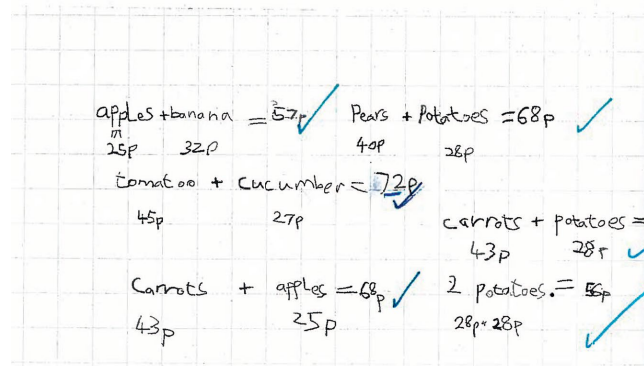 apples + banana = 57p
25p 32p
Pears + Potatoes = 68p
40p 28p
tomatoo + cucumber = 72p
45p 27p
carrots + potatoes =
43p 28p
Carrots + apples = 68p
43p 25p
2 potatoes. = 56p
28p + 28p